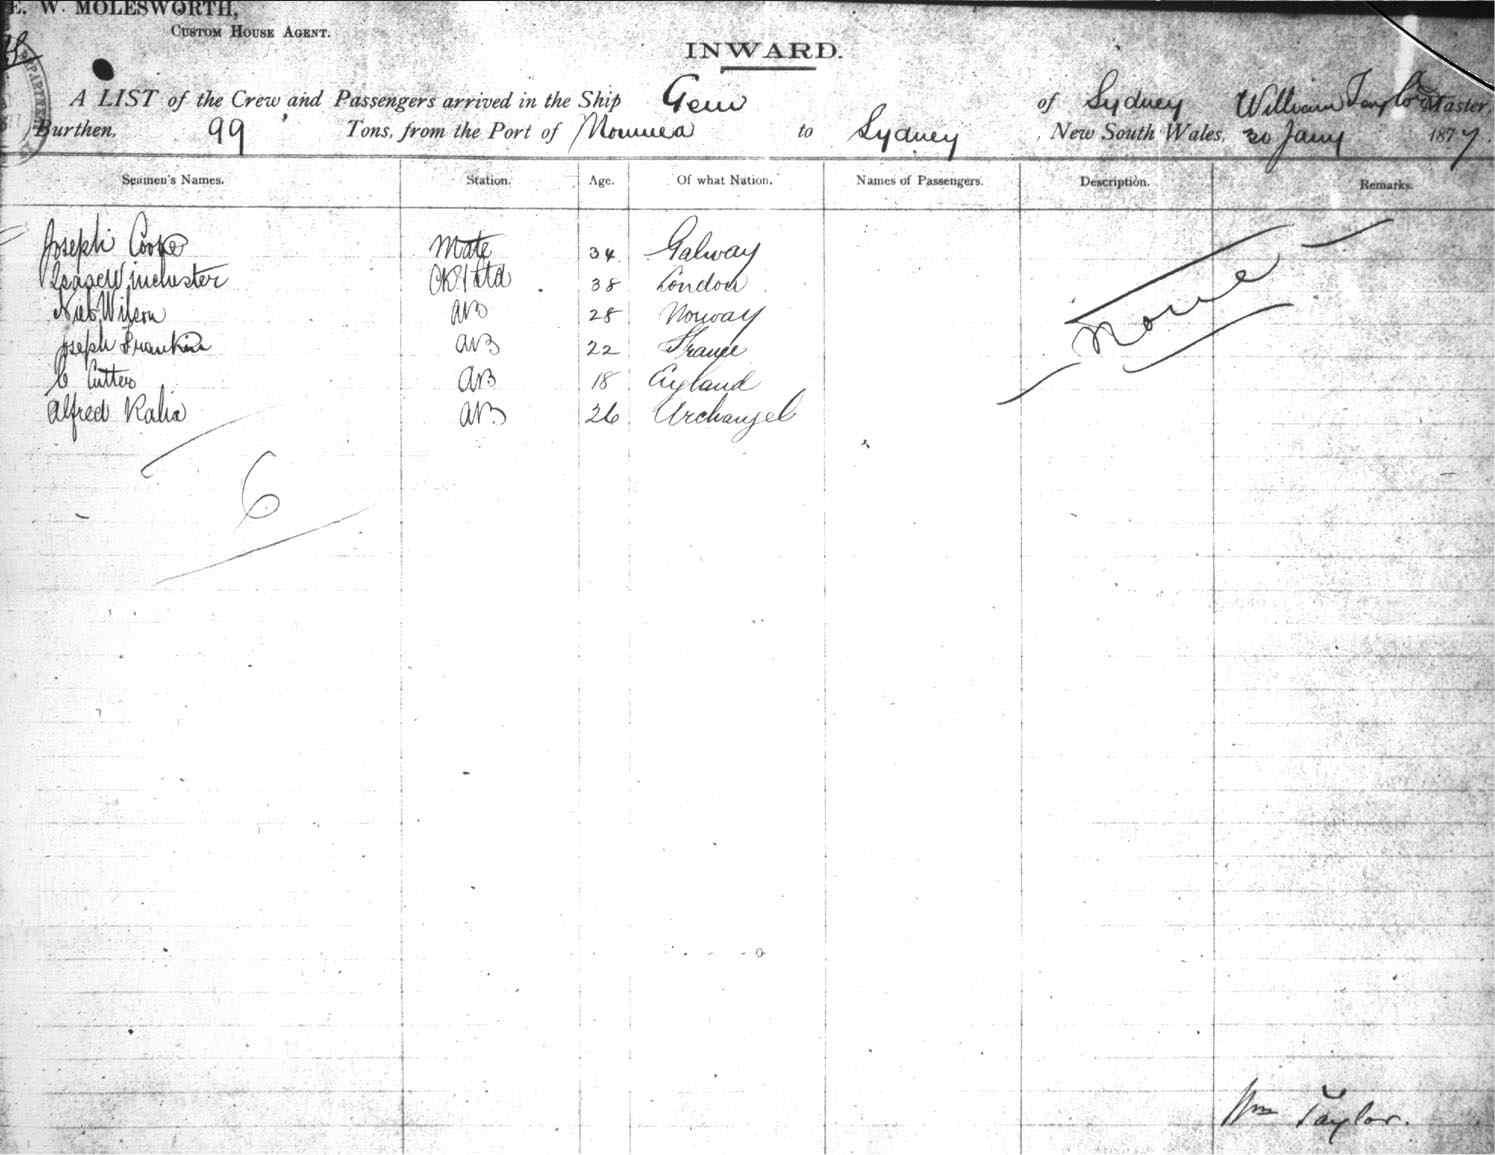 E. W. MOLESWORTH,
CUSTOM HOUSE AGENT.
INWARD.
A LIST of the Crew and Passengers arrived in the Ship Gem of Sydney William Taylor Master,
Burthen, 99 Tons, from the Port of Noumea to Sydney, New South Wales, 30 Jany 1877
Seamen's Names. Station. Age. Of what Nation. Names of Passengers. Description. Remarks.
Joseph Cooke Mate 34 Galway
Isaac Winchester Ck & Std 38 London
Wilson AB 28 Norway
Joseph AB 22 France
C AB 18 England
Alfred Kalia AB 26 Archangel
None
6
Wm Taylor.